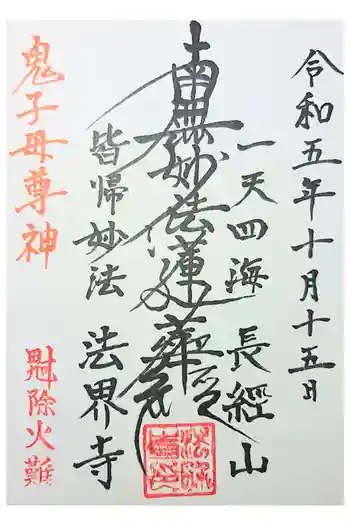 令和五年十月十五日
一天四海 長經山
南無妙法蓮華經
皆帰妙法 法界寺
鬼子母尊神
除火難